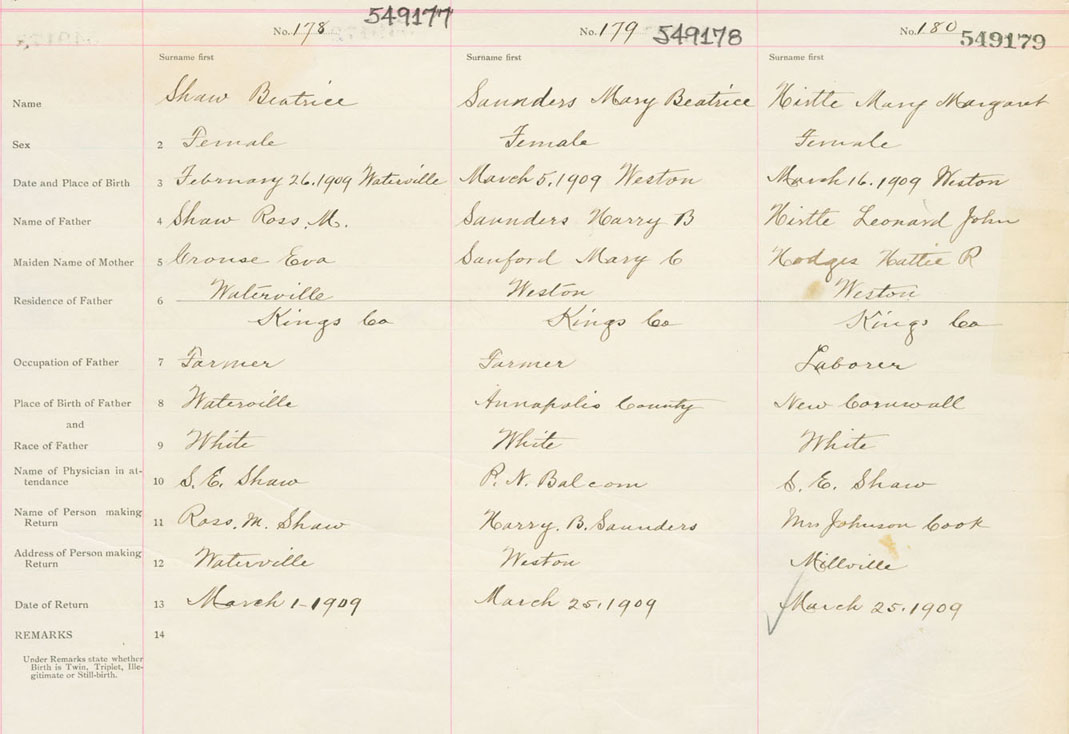 No. 178 549177 No. 179 549178 No. 180 549179
Surname first Surname first Surname first
Name Shaw Beatrice Saunders Mary Beatrice Hirtle Mary Margaret
Sex 2 Female Female Female
Date and Place of Birth 3 February 26. 1909 Waterville March 5. 1909 Weston March 16. 1909 Weston
Name of Father 4 Shaw Ross. M. Saunders Harry B Hirtle Leonard John
Maiden Name of Mother 5 Crouse Eva Sanford Mary C Hodges Hattie R
Residence of Father 6 Waterville Weston Weston
Kings Co Kings Co Kings Co
Occupation of Father 7 Farmer Farmer Laborer
Place of Birth of Father 8 Waterville Annapolis County New Cornwall
and
Race of Father 9 White White White
Name of Physician in at-
tendance 10 S. E. Shaw P. N. Balcom S. E. Shaw
Name of Person making
Return 11 Ross. M. Shaw Harry. B. Saunders Mrs Johnson Cook
Address of Person making
Return 12 Waterville Weston Millville
Date of Return 13 March 1 - 1909 March 25. 1909 March 25. 1909
REMARKS 14
Under Remarks state whether
Birth is Twin, Triplet, Ille-
gitimate or Still-birth.